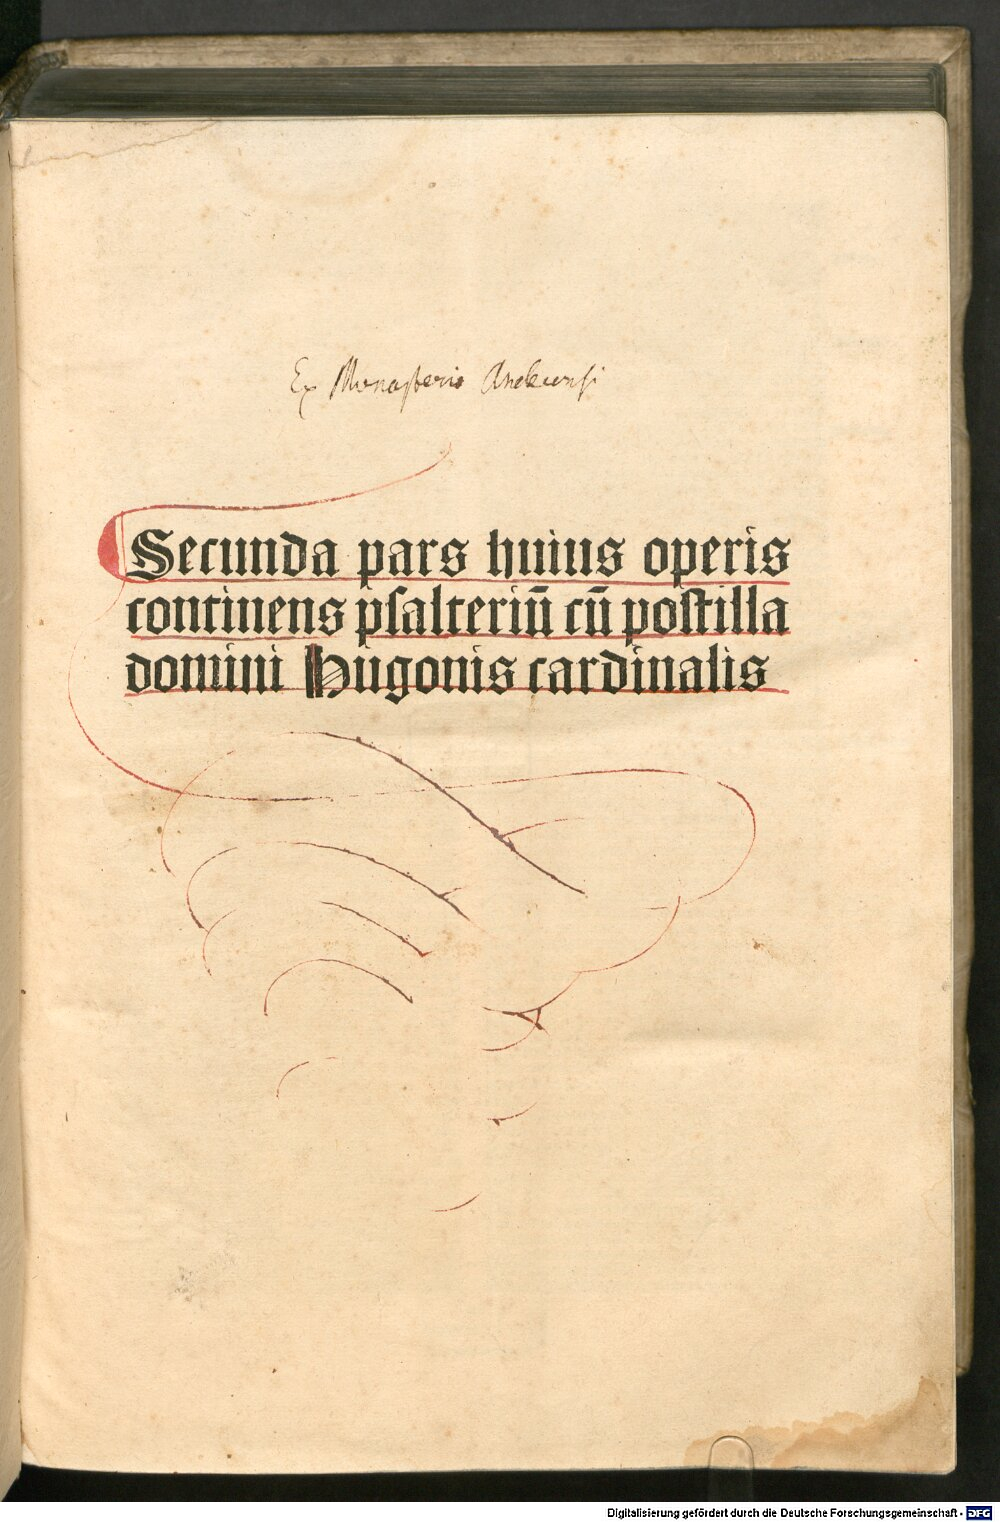 Ex Monasterio Andecensi
Secunda pars huius operis
continens psalteriū cū postilla
domini Hugonis cardinalis
Digitalisierung gefördert durch die Deutsche Forschungsgemeinschaft - DFG